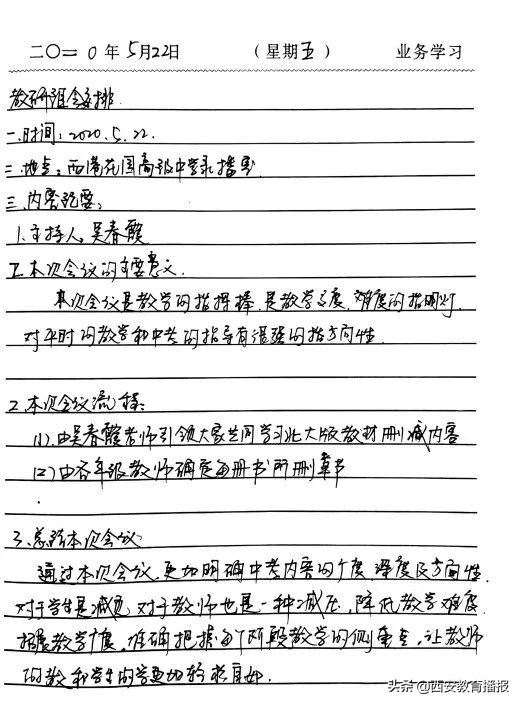 二〇二0年5月22日 （星期五） 业务学习
教研组会安排
一.时间：2020.5.22.
二.地点：西港花园高级中学录播室
三.内容纪要：
1.主持人：吴春霞
2.本次会议的主要意义.
本次会议是教学的指挥棒.是教学广度、难度的指明灯.
对平时的教学和中考的指导有很强的指方向性.
2.本次会议流程：
(1).由吴春霞老师引领大家共同学习北大版教材删减内容
(2)由各年级教师确定每册书所删章节
3.总结本次会议
通过本次会议.更加明确中考内容的广度、深度及方向性.
对于学生是减负.对于教师也是一种减压.降低教学难度.
拓展教学广度.准确把握每个阶段教学的侧重点.让教师
的教和学生的学更加轻松自如.
头条 @西安教育播报